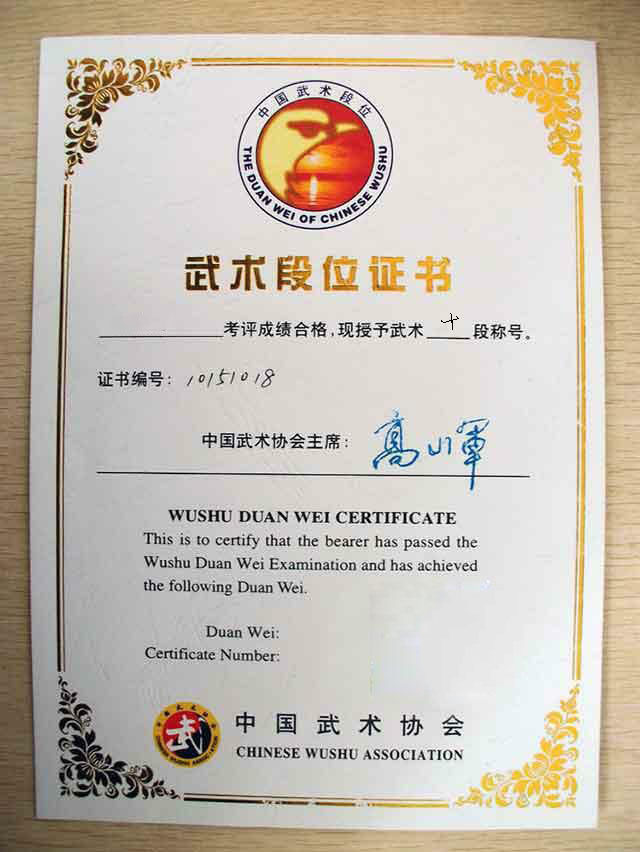 中国武术段位
THE DUAN WEI OF CHINESE WUSHU
武术段位证书
考评成绩合格,现授予武术 十 段称号。
证书编号: 10151018
中国武术协会主席: 高山軍
WUSHU DUAN WEI CERTIFICATE
This is to certify that the bearer has passed the
Wushu Duan Wei Examination and has achieved
the following Duan Wei.
Duan Wei:
Certificate Number:
武
CHINESE WUSHU ASSOCIATION
中国武术协会
CHINESE WUSHU ASSOCIATION